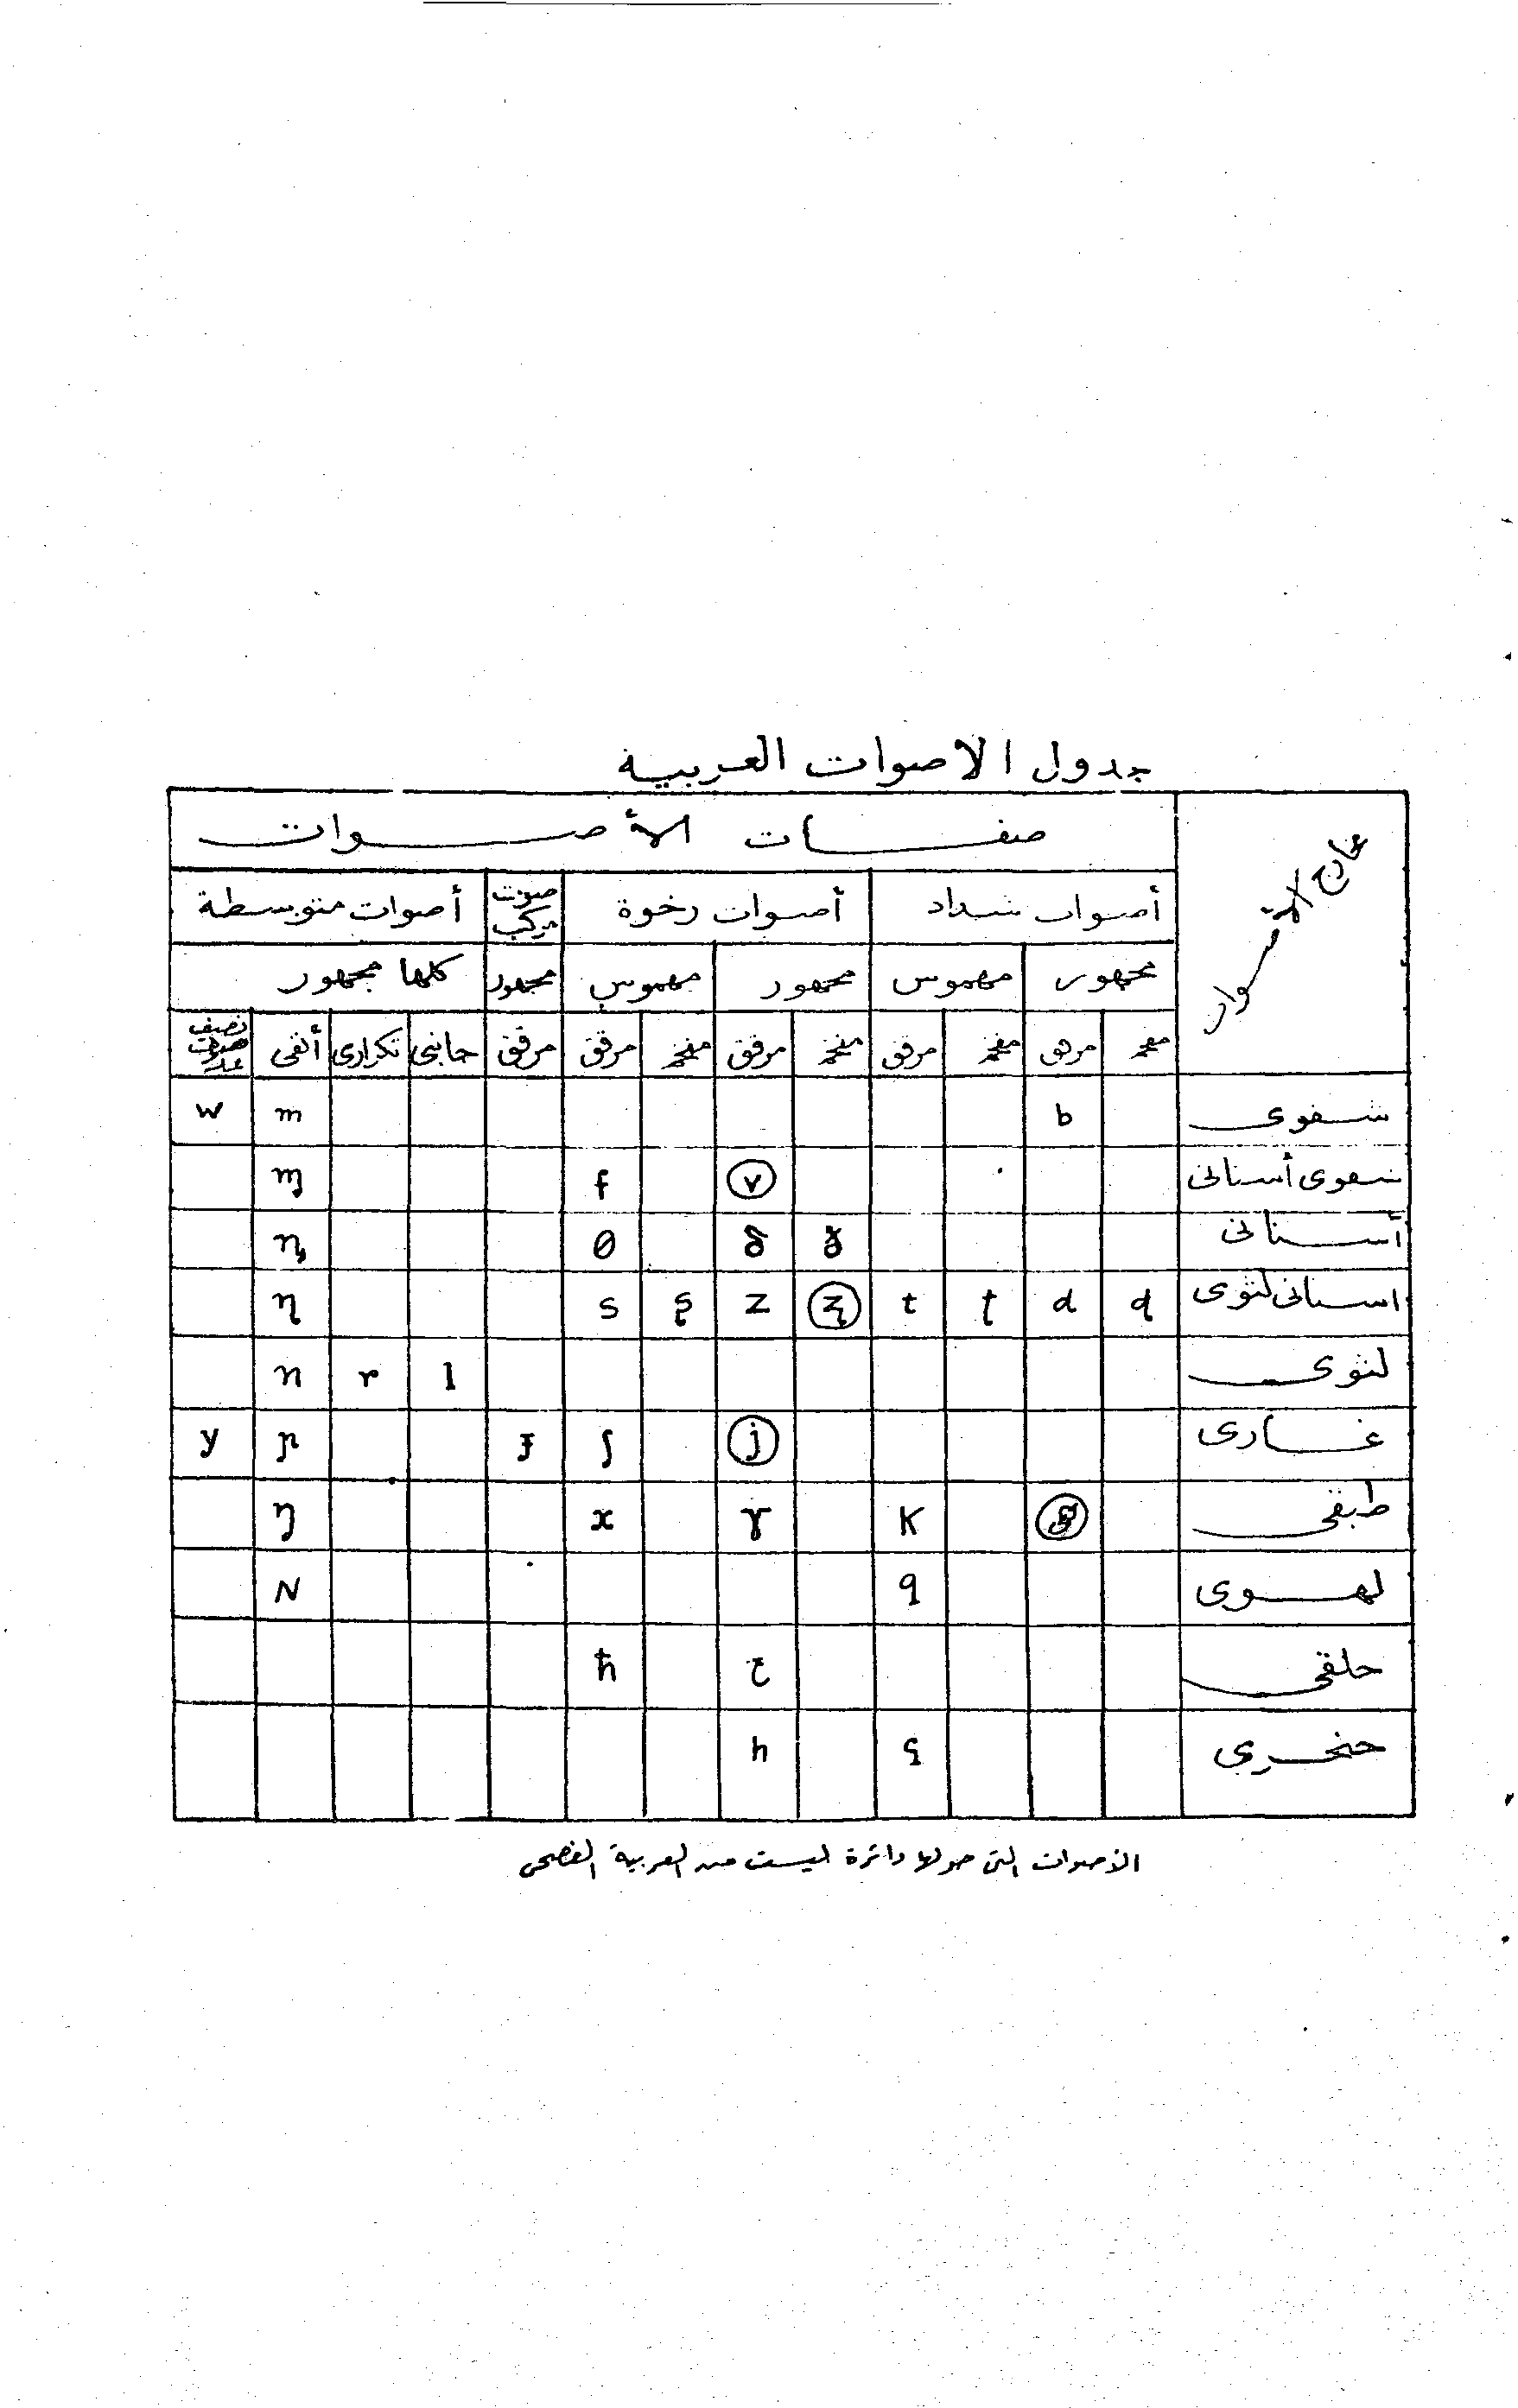 جدول الاصوات العربية
مخارج الأصوات
صفات الأصوات
أصوات شداد أصوات رخوة صوت مركب أصوات متوسطة
مجهور مهموس مجهور مهموس مجهور كلها مجهور
مفخم مرقق مفخم مرقق مفخم مرقق مفخم مرقق مرقق جانبى تكرارى أنفى نصف
شفوى b m w
شفوى أسنانى v f ɱ
أسنانى δ θ
اسنانى لثوى d t z s
لثوى l r n
غارى j ʃ ɲ y
طبقى g K ɣ x ŋ
لهوى q N
حلقى ح ħ
حنجرى
الأصوات التى حولها دائرة ليست من العربية الفصحى